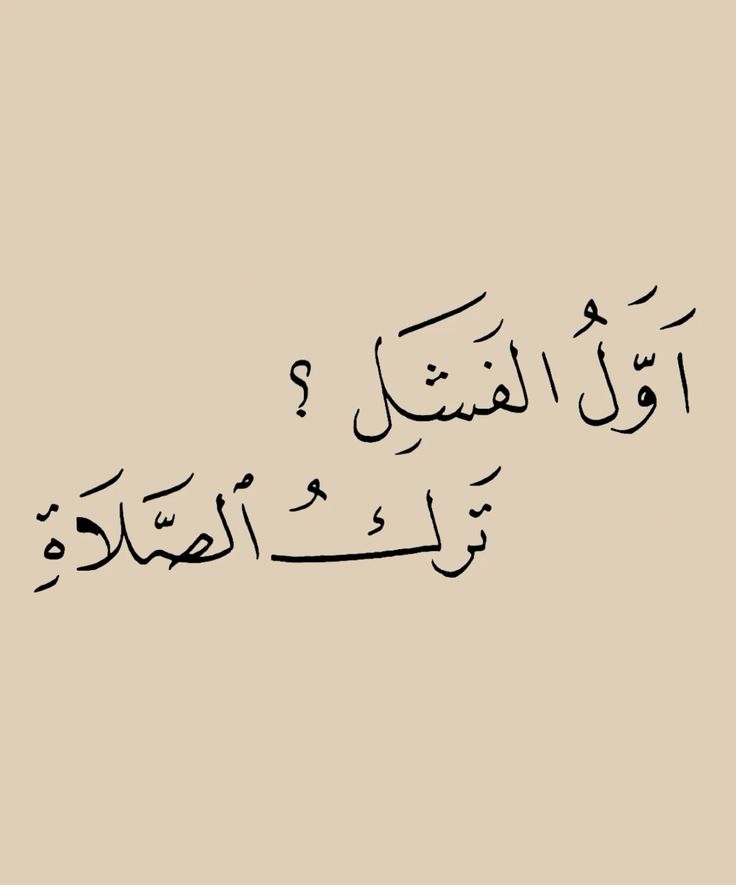 اَوَّلُ الفَشَلِ ؟
تَركُ ٱلصَّلَاةِ